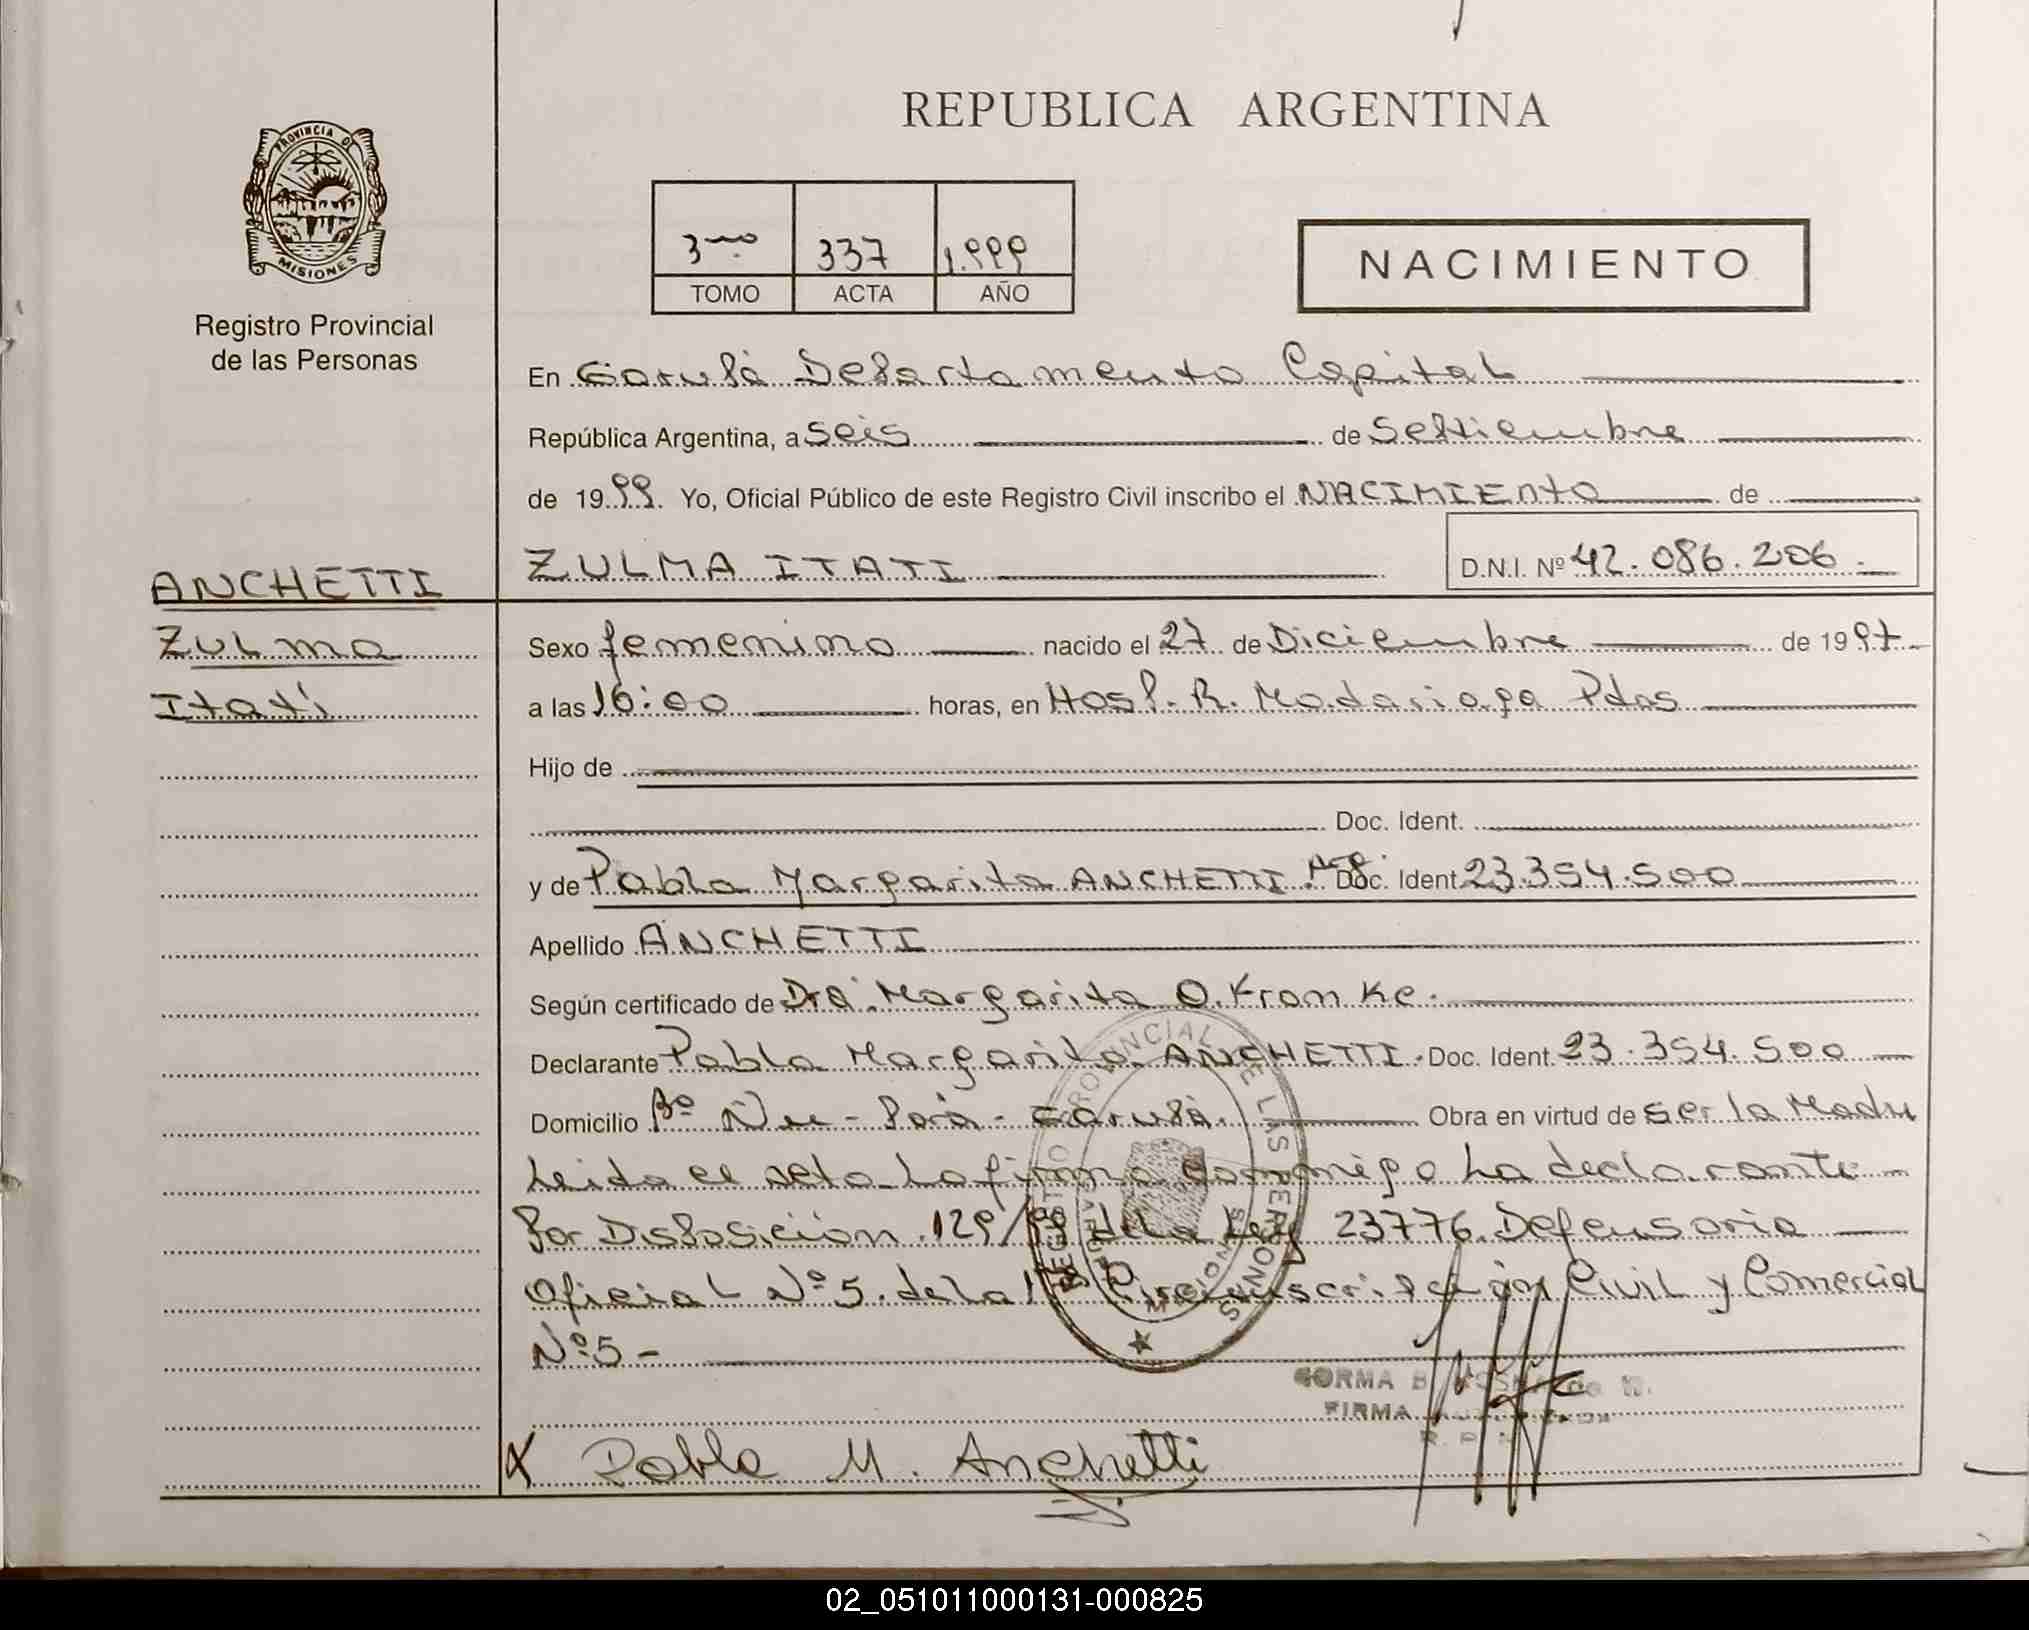 REPUBLICA ARGENTINA
PROVINCIA DE
MISIONES
Registro Provincial
de las Personas
3ro 337 1.999
TOMO ACTA AÑO
NACIMIENTO
En Garupá Departamento Capital
República Argentina, a seis de Septiembre
de 1999. Yo, Oficial Público de este Registro Civil inscribo el NACIMIENTO de
ZULMA ITATI D.N.I. Nº 42.086.206.-
ANCHETTI
Zulma
Itatí
Sexo femenino nacido el 27 de Diciembre de 1997
a las 16:00 horas, en Hosp. R. Madariaga Pdas
Hijo de
Doc. Ident.
y de Pabla Margarita ANCHETTI. Arg. Doc. Ident 23.354.500
Apellido ANCHETTI
Según certificado de Dra. Margarita O. Kramke.
Declarante Pabla Margarita ANCHETTI. Doc. Ident. 23.354.500
Domicilio Bº Ñu-Porá-Garupá. Obra en virtud de ser la Madre
Leída el acta la firma conmigo la declarante
por Disposición 129/99 de la Ley 23776. Defensoria
Oficial Nº 5. de la 1ª Circunscripción Civil y Comercial
Nº 5-
REGISTRO PROVINCIAL DE LAS PERSONAS
GARUPA
MISIONES
FIRMA
Pabla M. Anchetti
02_051011000131-000825